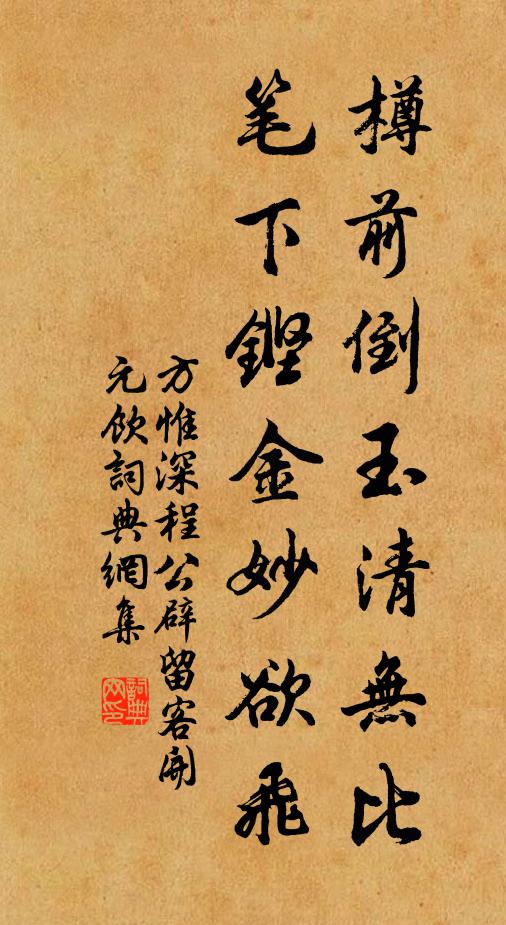 樽前倒玉清無比
笔下鏗金妙欲飛
方惟深程公辟留客開
元飲詞典網集
詞典
网印